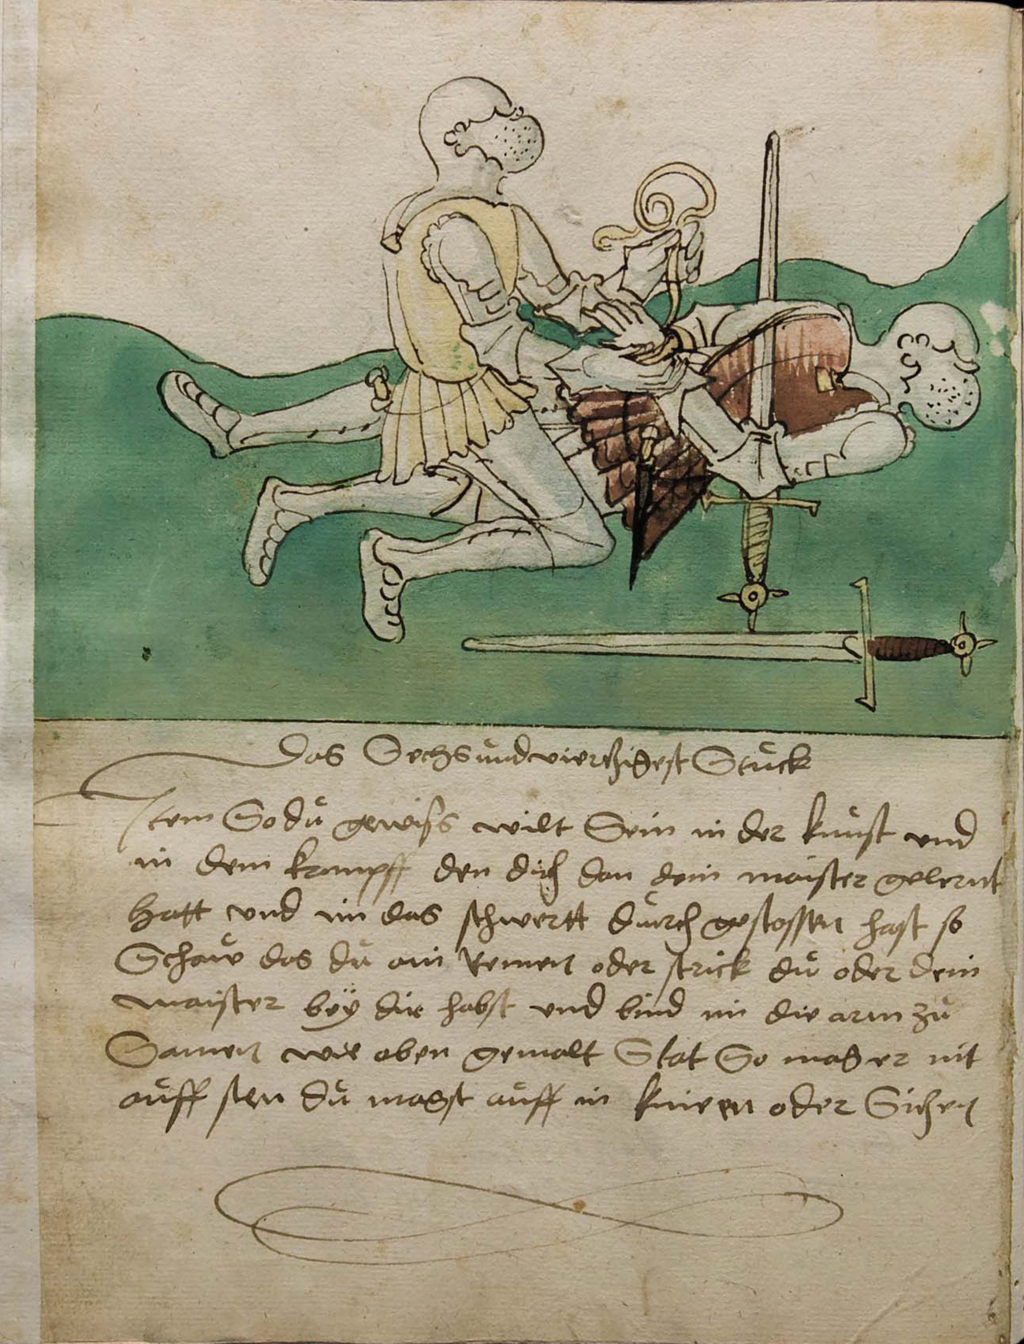 Das Sechsundvierzigest Stuck
Item So du gewiss wilt Sein in der kunst und
in dem kampff den dich dan dein maister gelernt
hatt und im das schwertt durch gestossen hast so
Schaw das du ain Remen oder strick du oder dein
maister bey dir habst und bind im die arm zu
Samen wie oben gemalt Stat So mag er nit
auff sten du magst auff im knieen oder Sitzen